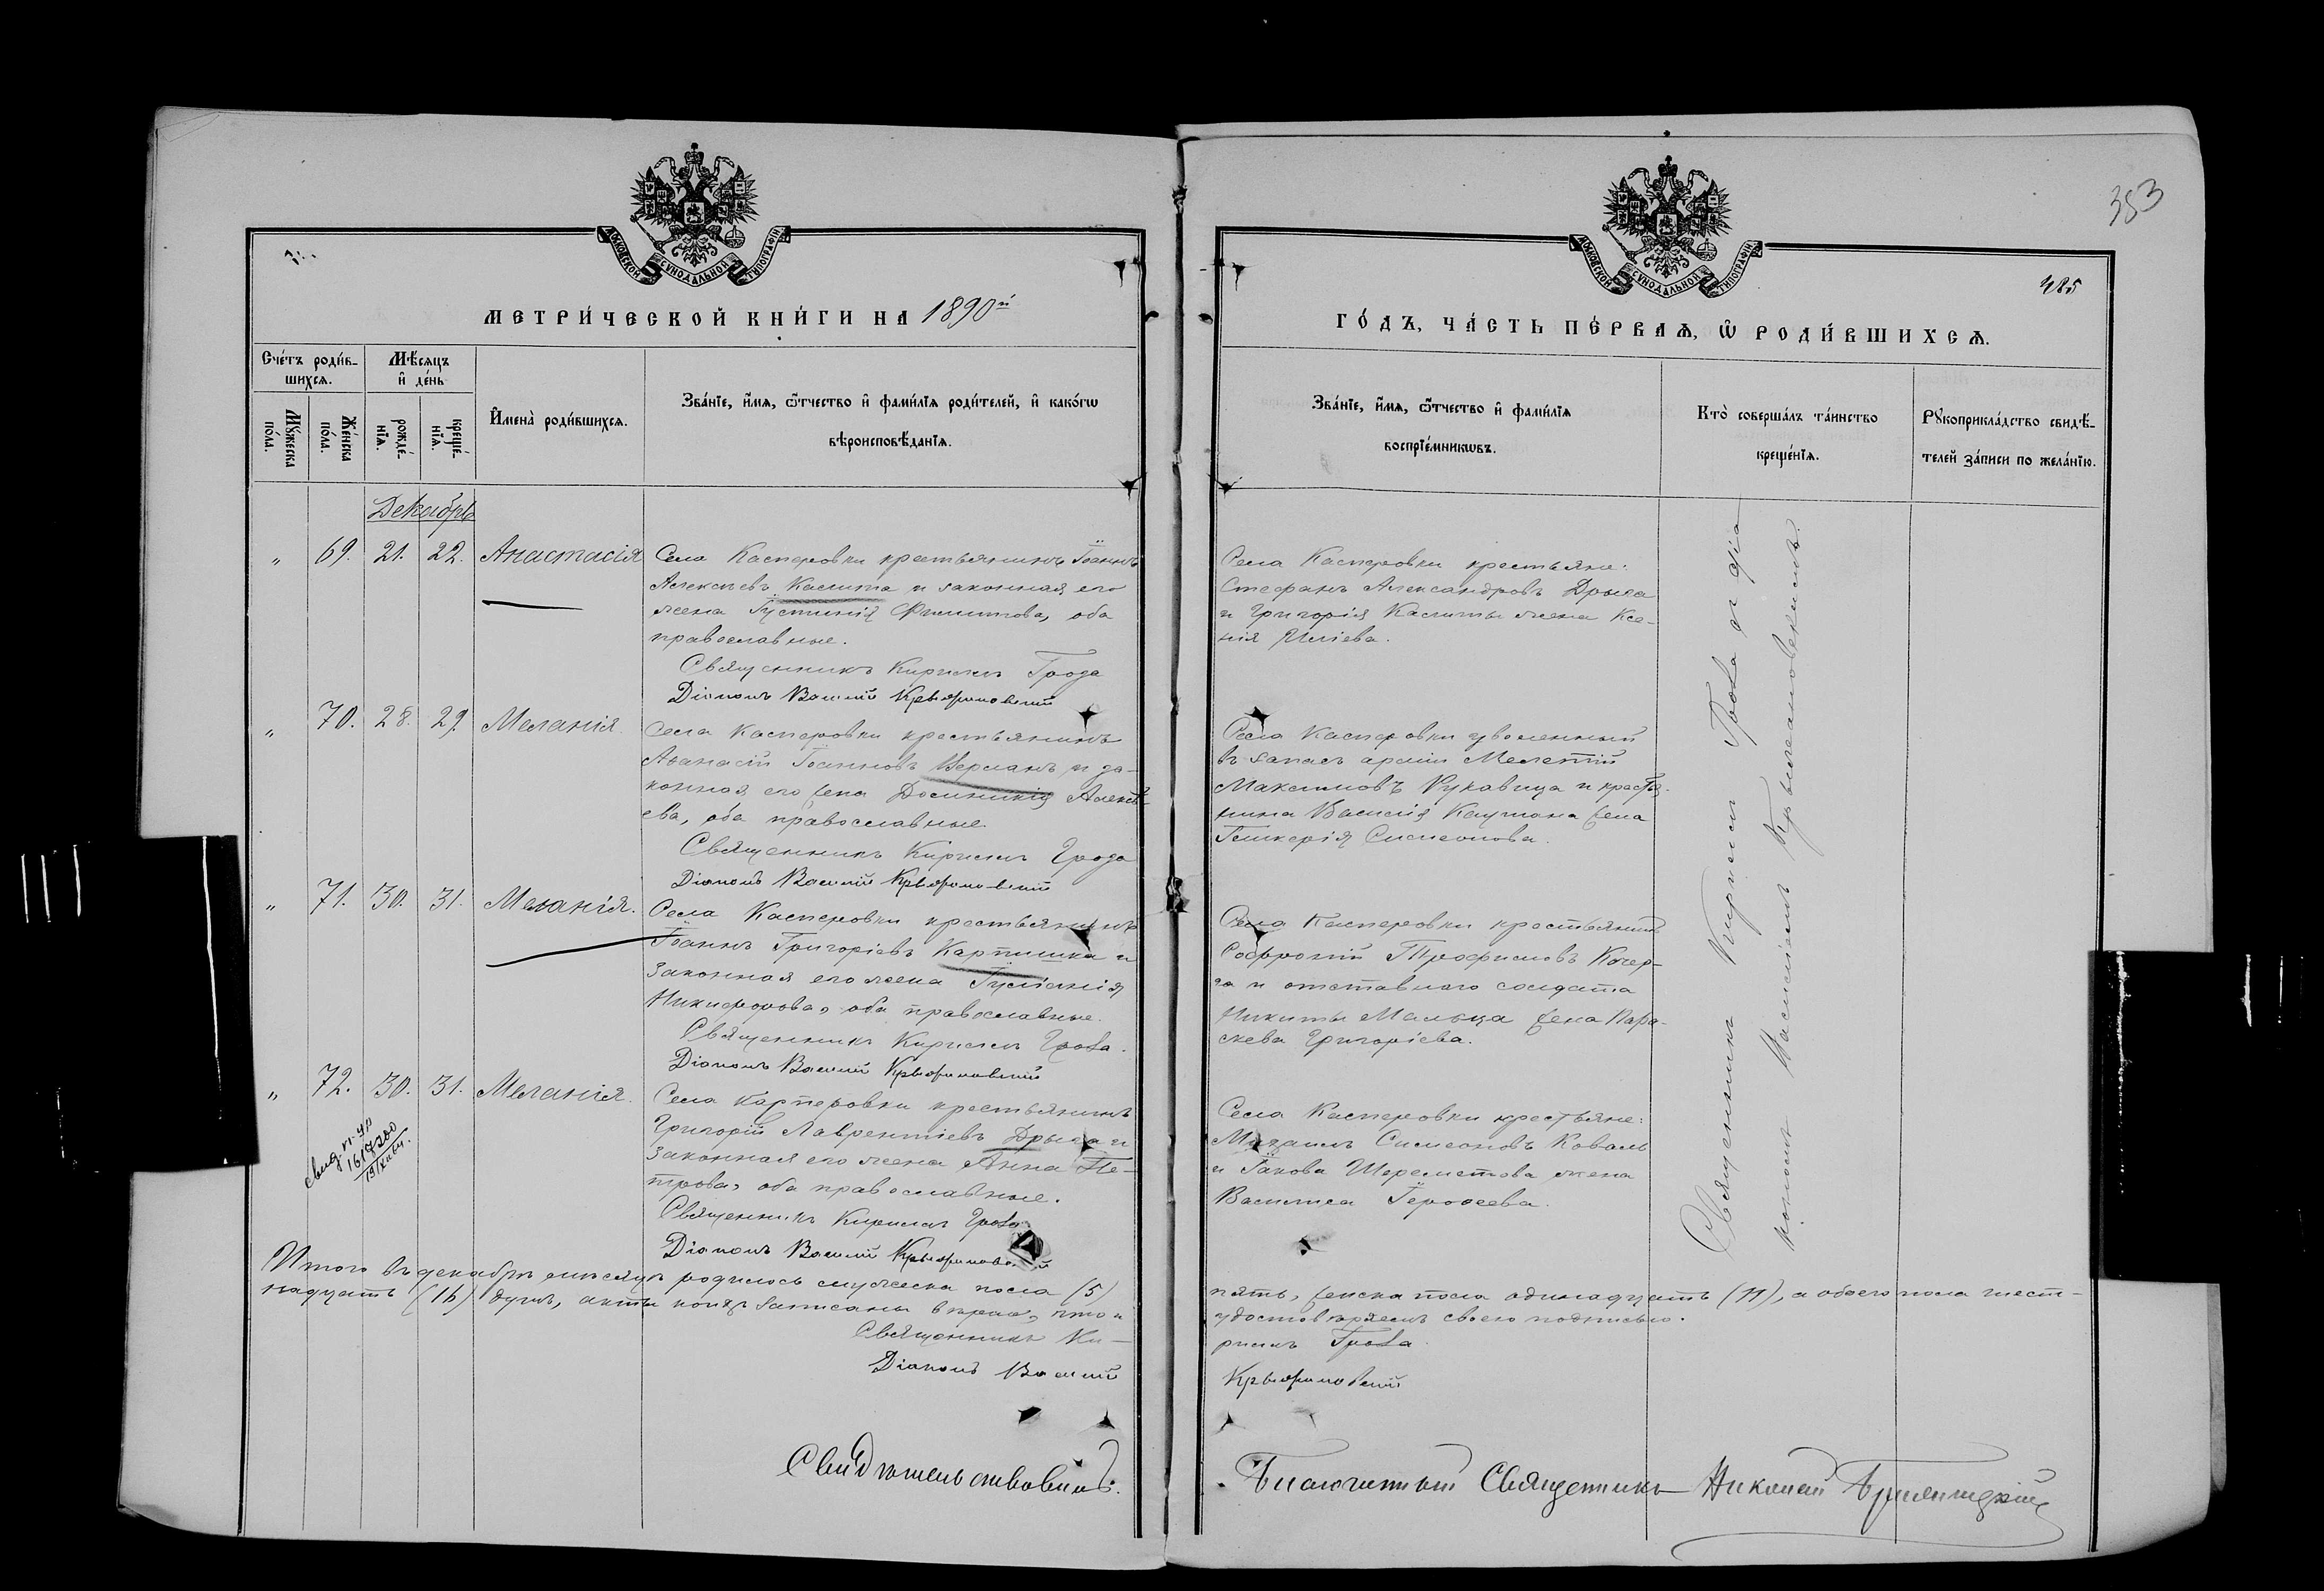 383
485
МОСКОВСКОЙ СѴНОДАЛЬНОЙ ТИПОГРАФІИ
МОСКОВСКОЙ СѴНОДАЛЬНОЙ ТИПОГРАФІИ
МЕТРИ́ЧЕСКОЙ КНИ́ГИ НА 1890й
ГО́ДЪ, ЧА́СТЬ ПЕ́РВАѦ, Ѿ РОДИ́ВШИХСѦ.
Сче́тъ роди́в-
шихсѧ.
Мꙋ́жеска
по́ла.
Же́нска
по́ла.
Мѣ́сѧцъ
и҆ де́нь
рожде́-
нїѧ.
креще́-
нїѧ.
И҆мена̀ роди́вшихсѧ.
Зва́нїе, и҆́мѧ, ѻ҆́тчество и҆ фами́лїѧ роди́телей, и҆ како́гѡ
вѣроисповѣ́данїѧ.
Зва́нїе, и҆́мѧ, ѻ҆́тчество и҆ фами́лїѧ
воспрїе́мникѡвъ.
Кто̀ соверша́лъ та́инство
креще́нїѧ.
Рꙋкоприкла́дство свидѣ́-
телей за́писи по жела́нїю.
Декабрь
„ 69. 21. 22. Анастасія
Села Касперовки крестьянинъ Іоаннъ
Алексѣевъ Калита и законная его
жена Іустинія Филиппова, оба
православные.
Священникъ Кириллъ Грода
Діаконъ Василій
Села Касперовки крестьяне:
Стефанъ Александровъ Дрыга
и Григорія Калиты жена Ксе-
нія Иліева.
„ 70. 28. 29. Меланія.
Села Касперовки крестьянинъ
Аѳанасій Іоанновъ и за-
конная его жена Домникія Алексѣ-
ева, оба православные.
Священникъ Кириллъ Грода
Діаконъ Василій
Села Касперовки уволенный
въ запасъ арміи Мелетій
Максимовъ Рукавица и крестья-
нина Василія жена
Гликерія Симеонова.
„ 71. 30. 31. Меланія.
Села Касперовки крестьянинъ
Іоаннъ Григоріевъ и
законная его жена Іуліанія
Никифорова, оба православные.
Священникъ Кириллъ Грода.
Діаконъ Василій
Села Касперовки крестьянинъ
Софроній Трофимовъ Кочер-
га и отставнаго солдата
Никиты Мальца жена Пара-
скева Григоріева.
„ 72. 30. 31. Меланія.
Села Касперовки крестьянинъ
Григорій Лаврентіевъ Дрыга и
законная его жена Анна Пе-
трова, оба православные.
Священникъ Кириллъ Грода
Діаконъ Василій
Села Касперовки крестьяне:
Михаилъ Симеоновъ Коваль
и Іакова Шереметова жена
Василиса Іероѳеева.
Священникъ Кириллъ Грода съ діа
кономъ Василіемъ
Итого въ декабрѣ мѣсяцѣ родилось мужеска пола (5)
пять, женска пола одинадцать (11), а обоего пола шест-
надцать (16) душъ, акты коихъ записаны вѣрно, что и
удостовѣряемъ своею подписью.
Священникъ Ки-
риллъ Грода
Діаконъ Василій
Свидѣтельствовалъ.
Благочинный Священникъ Николай